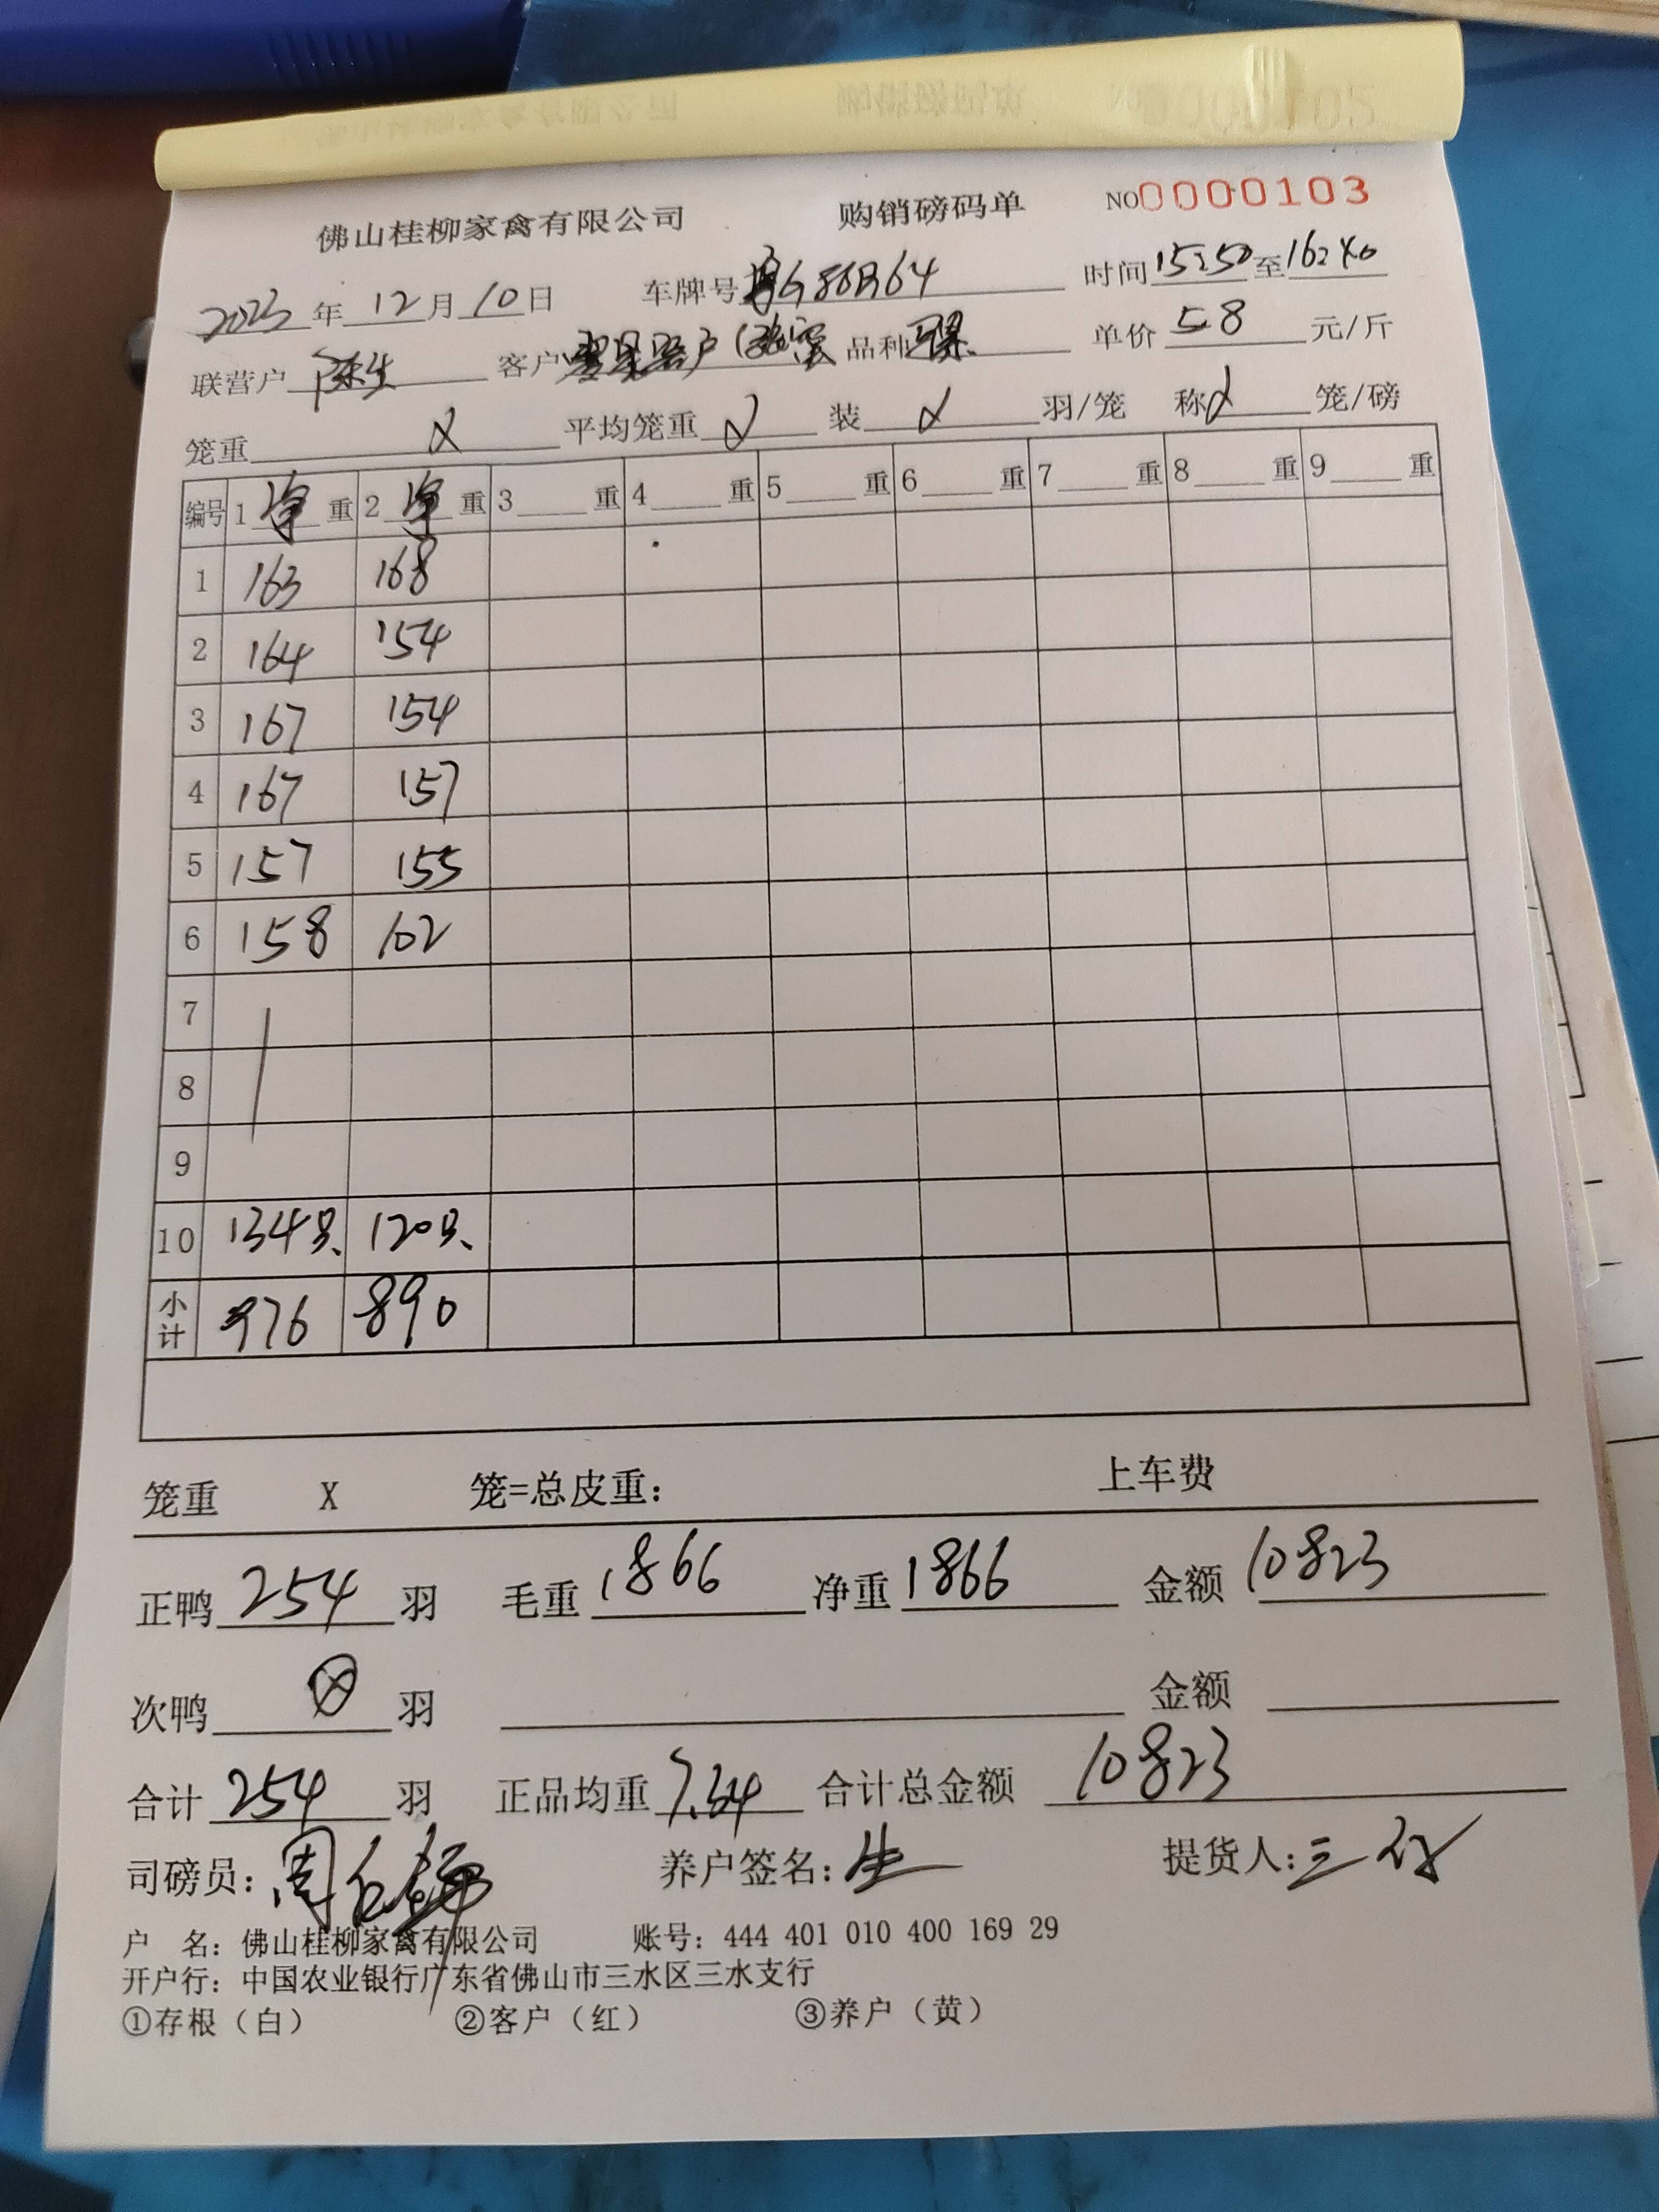 佛山桂柳家禽有限公司 购销磅码单 NO0000103
2023年12月10日 车牌号粤G86B64 时间15:50至16:40
联营户陈生 客户零星客户 品种 单价5.8元/斤
笼重X 平均笼重X 装X羽/笼 称X笼/磅
编号 1净重 2净重 3重 4重 5重 6重 7重 8重 9重
1 163 168
2 164 154
3 167 154
4 167 157
5 157 155
6 158 102
7
8
9
10 134只 120只
小计 976 890
笼重 X 笼=总皮重: 上车费
正鸭254羽 毛重1866 净重1866 金额10823
次鸭羽 金额
合计254羽 正品均重7.34 合计总金额10823
司磅员:周 养户签名:生 提货人:
户 名:佛山桂柳家禽有限公司 账号:444 401 010 400 169 29
开户行:中国农业银行广东省佛山市三水区三水支行
①存根(白) ②客户(红) ③养户(黄)